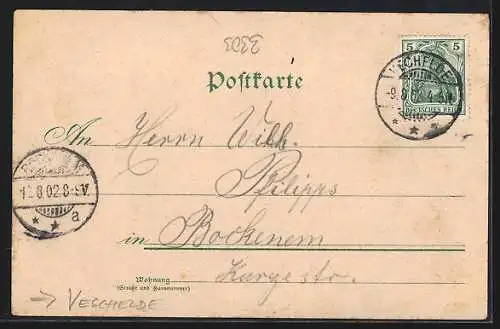 3303
5 5
DEUTSCHES REICH
VECHELDE
9.8.02.4
Postkarte
An Herrn Wilh.
Philipps
in Bockenem
Kurzestr.
Wohnung
(Straße und Hausnummer)
8.02.8-9V.
a
→ VESCHELDE